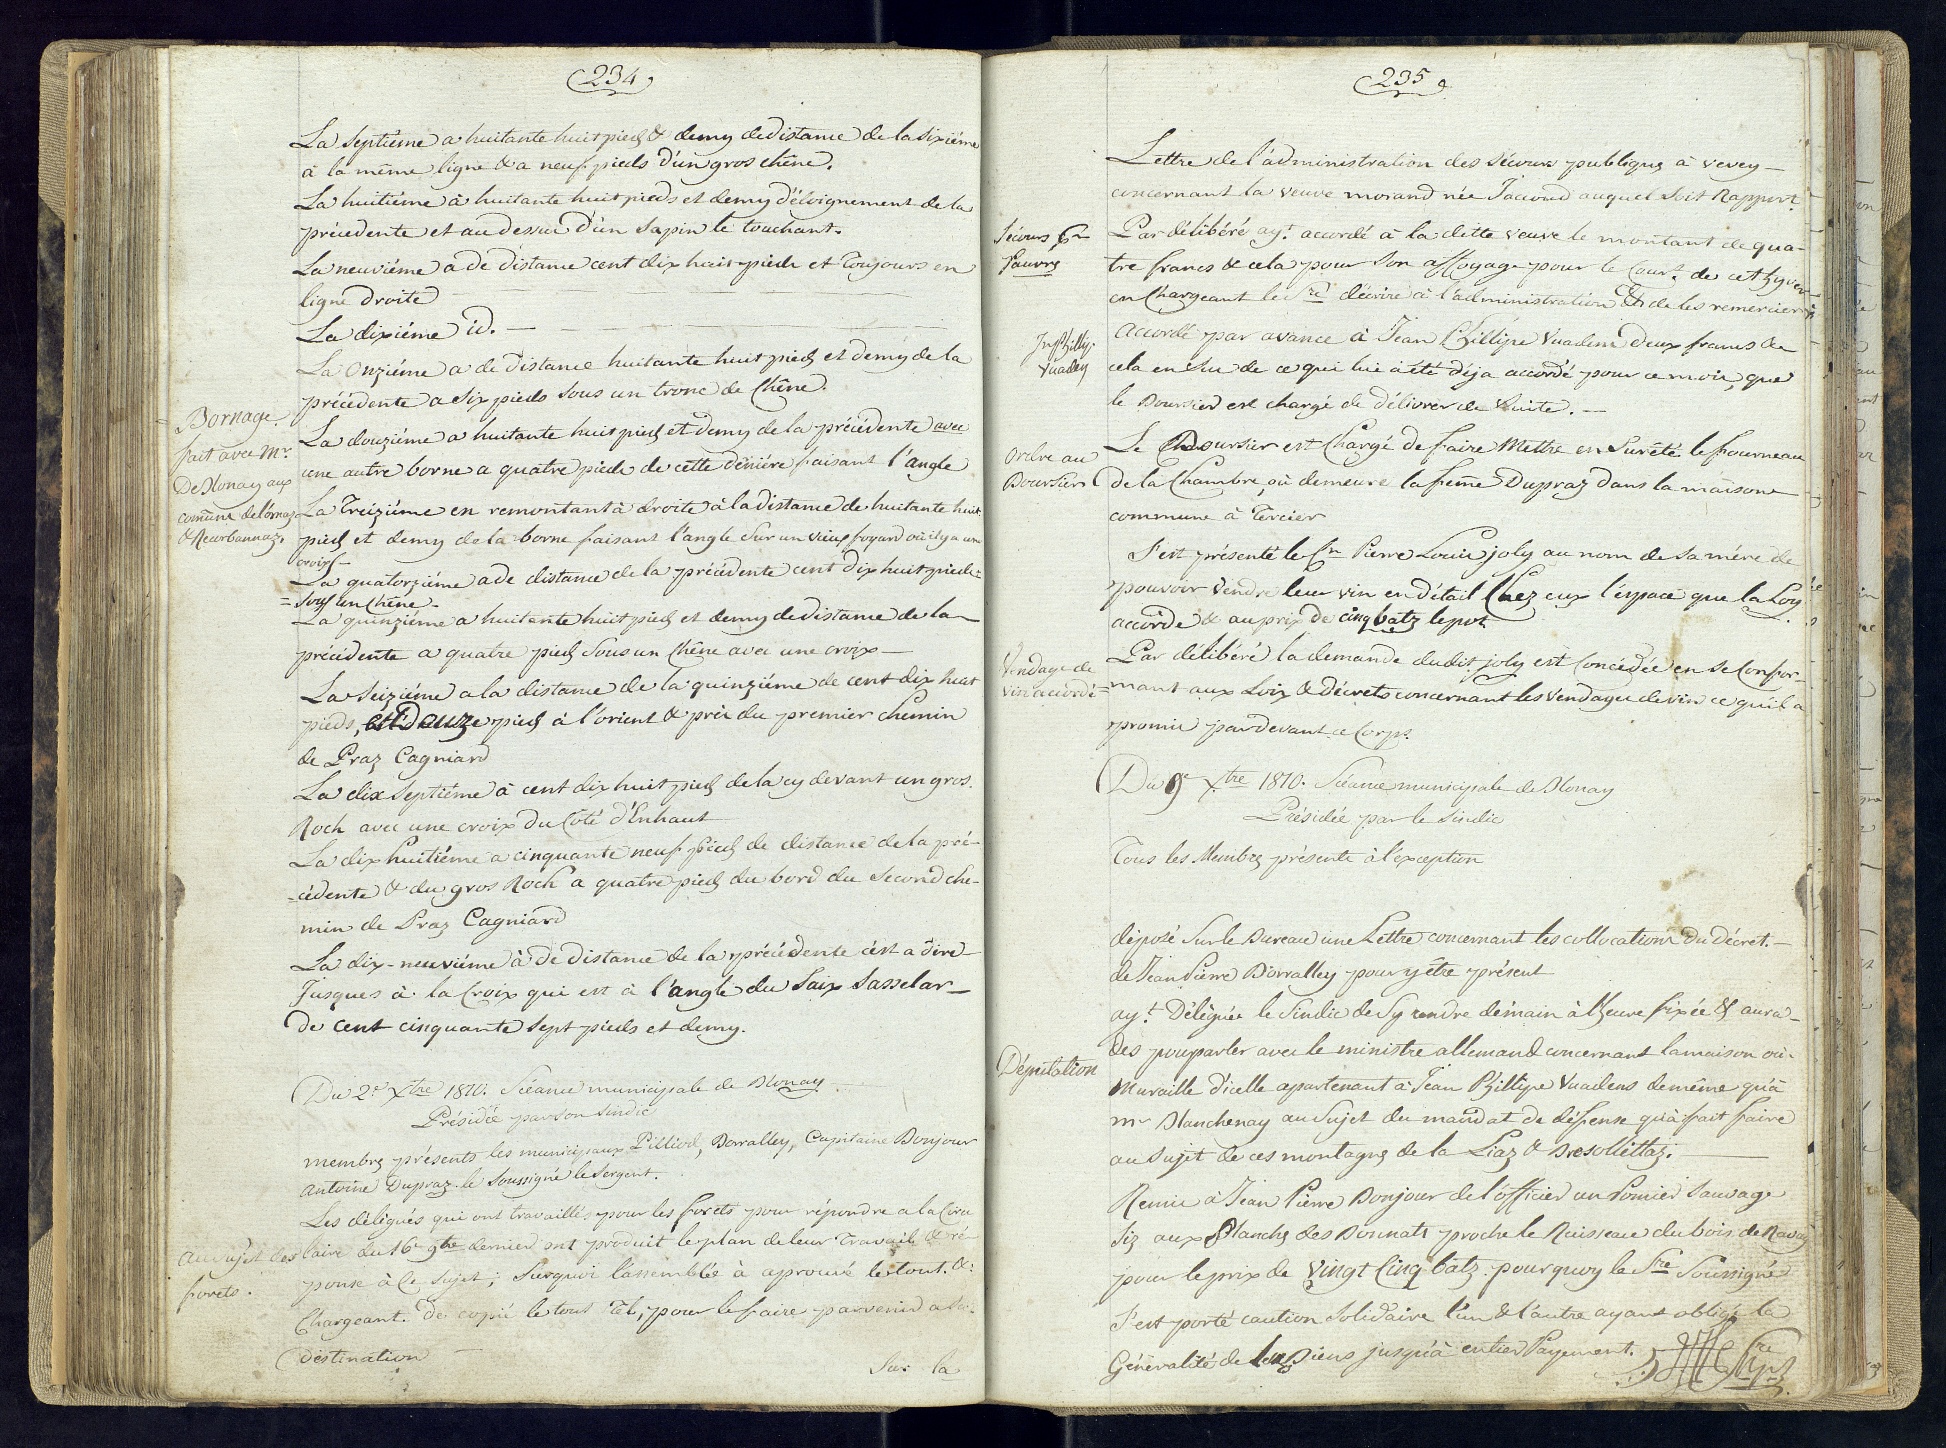 234
La Septiéme a huitante huit pieds & demy de distance de la sixiéme
à la même ligne & a neuf pieds d'un gros chêne.
La huitiéme à huitante huit pieds et demy d'éloignement de la
précedente et au dessus d'un Sapin le touchant.
La neuviéme a de distance cent dix huit pieds et Toujours en
ligne droite
La dixiéme id.
La Onziéme a de distance huitante huit pieds et demy de la
précédente a six pieds sous un tronc de Chêne.
Bornage
fait avec Mr.
De Blonay aux
comune delornaz
& Neurbannaz.
La douziéme a huitante huit pieds et demy de la précédente avec
une autre borne a quatre pieds de cette derniére faisant l'angle
La Treiziéme en remontant à droite à la distance de huitante huit
pieds et demy de la borne faisant l'angle Sur un vieux foyard où il y a une
croix
La quatorziéme a de distance de la précédente cent dix huit pieds
= sous un Chêne
La quinziéme a huitante huit pieds et demy de distance de la
précédente a quatre pieds Sous un Chêne avec une croix
La Seiziéme a la distance de la quinziéme de cent dix huit
pieds, et douze pieds à l'orient & prés du premier chemin
de Praz Cagniard
La dix Septiéme à cent dix huit pieds de la cy devant un gros
Roch avec une croix du Côté d'Enhaut
La dix huitiéme a cinquante neuf pieds de distance de la pré-
-cédente & du gros Roch a quatre pieds du bord du Second che-
min de Praz Cagniard
La dix-neuviéme à de distance de la précédente c'est a dire
Jusques à la Croix qui est à l'angle du Saix Sasselar-
de cent cinquante sept pieds et demy.
Du 2e. Xbre 1810. Séance municipale de Blonay
Présidée par son Sindic
membres présents les municipaux Pilliod, Dorralley, Capitaine Bonjour
Antoine Dupraz le Soussigné le Sergent.
Au sujet des
forets.
Les délégués qui ont travaillés pour les forets pour répondre a la Circu
laire du 16e 9bre dernier ont produit le plan de leur Travail & ré-
ponse à Ce Sujet; Surquoi l'assemblée à aprouvé le tout. &
Chargeant. de copié le tout Tel, pour le faire parvenir a Sa
destination
Sur la
235
Lettre de l'administration des Sécours publiques à Vevey
concernant la veuve morand née Jaccoud auquel Soit Rapport.
Sécours pr
Pauvres
Par délibéré ayt. accordé à la ditte veuve le montant de qua-
tre francs & cela pour Son affoyage pour le Court. de cet hyver
en Chargeant le Sre. décrire à l'administration & de les remercier
Jn. Phillip.
Vuaden
Accordé par avance à Jean Phillipe Vuadens deux francs &
cela en Vue de ce qui lui a été déja accordé pour ce mois, que
le Boursier est chargé de délivrer de Suite.
Ordre au
Boursier
Le Boursier est Chargé de faire Mettre en Surêté le fourneau
de la Chambre où demeure la feme Dupraz dans la maison
commune à Tercier
S'est présenté le Cn Pierre Louis joly au nom de Sa mére de
pouvoir Vendre leur vin en détail Chez eux l'éspace que la Loy
accorde & au prix de cinq batz le pot
Vendage de
vin accordé
Par délibéré la demande du dit joly est Concédée en se Confor-
mant aux Loix & décrets concernant les Vendages de vin ce qu'il a
promis par devant ce Corps.
Du 9e Xbre 1810. Séance municipale de Blonay
Présidée par le Sindic
Tous les Membres présents à l'exception
déposé Sur le Bureau une Lettre concernant les collocations du décret.
de Jean Pierre Dorralley pour y être présent
Députation
ayt. Déléguée le Sindic de Sy rendre démain à l'heure fixée & aura
des pouparler avec le ministre allemand concernant la maison où
Muraille d'icelle apartenant à Jean Phillipe Vuadens de même qu'à
mr Blanchenay au Sujet du mandat de défense qu'à fait faire
au Sujet de ces montagnes de la Liaz & Bresollettaz.
Remis à Jean Pierre Bonjour de l'officier un Pomier Sauvage
Siz aux Planches des Bonnats proche le Ruisseau du bois de
pour le prix de Vingt Cinq batz. pourquoy le Sre Soussigné
S'est porté caution Solidaire l'un & l'autre ayant obligé la
Généralité de leurs Biens jusqu'à entier Payement.